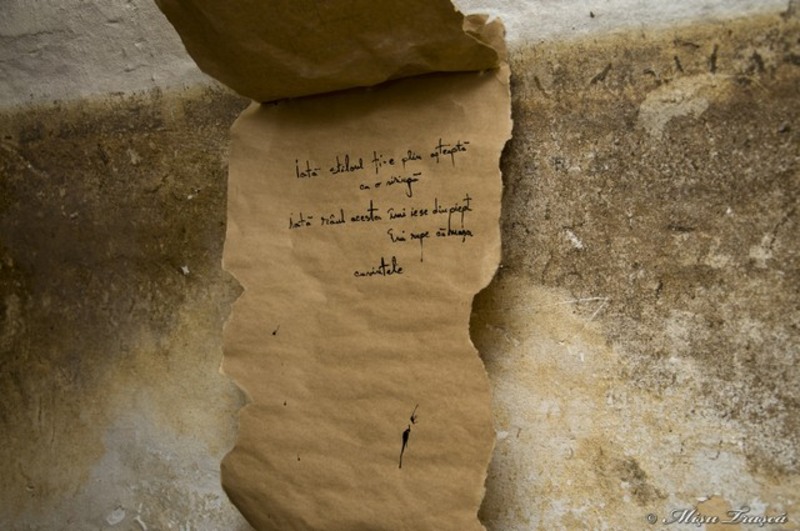 Iată stiloul ți-e plin așteaptă
ca o siringă
Iată râul acesta îmi iese din piept
Îmi rupe cămașa
cuvintele
© Mișu Trașcă